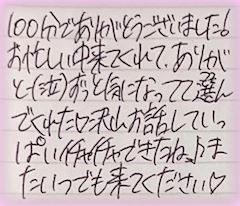 100分でありがとうございました！
お忙しい中来てくれて、ありが
と(泣)ずっと気になってて選ん
でくれた♡沢山お話していっ
ぱいイチャイチャできたね♪ま
たいつでも来てください♡